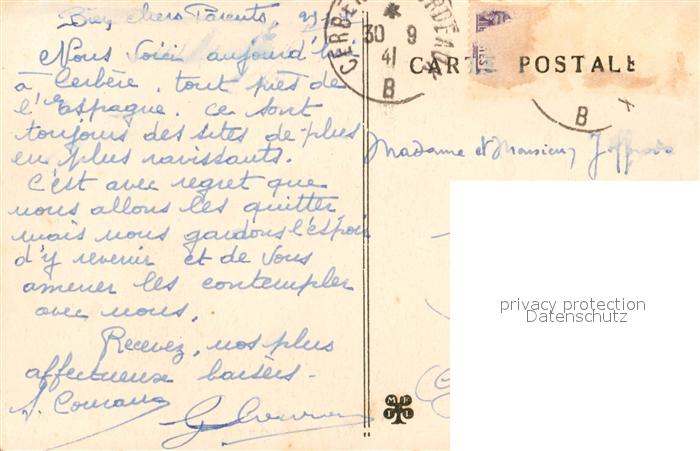 Bien chers Parents,
Nous voici aujourd'hui
à Cerbère, tout près de
l'Espagne. Ce sont
toujours des sites de plus
en plus ravissants.
C'est avec regret que
nous allons les quitter
mais nous gardons l'espoir
d'y revenir et de vous
amener les contempler
avec nous.
Recevez, nos plus
affectueux baisers -
CERBÈRE
30 9
41
B
CARTE POSTALE
B
Madame et Monsieur
privacy protection
Datenschutz